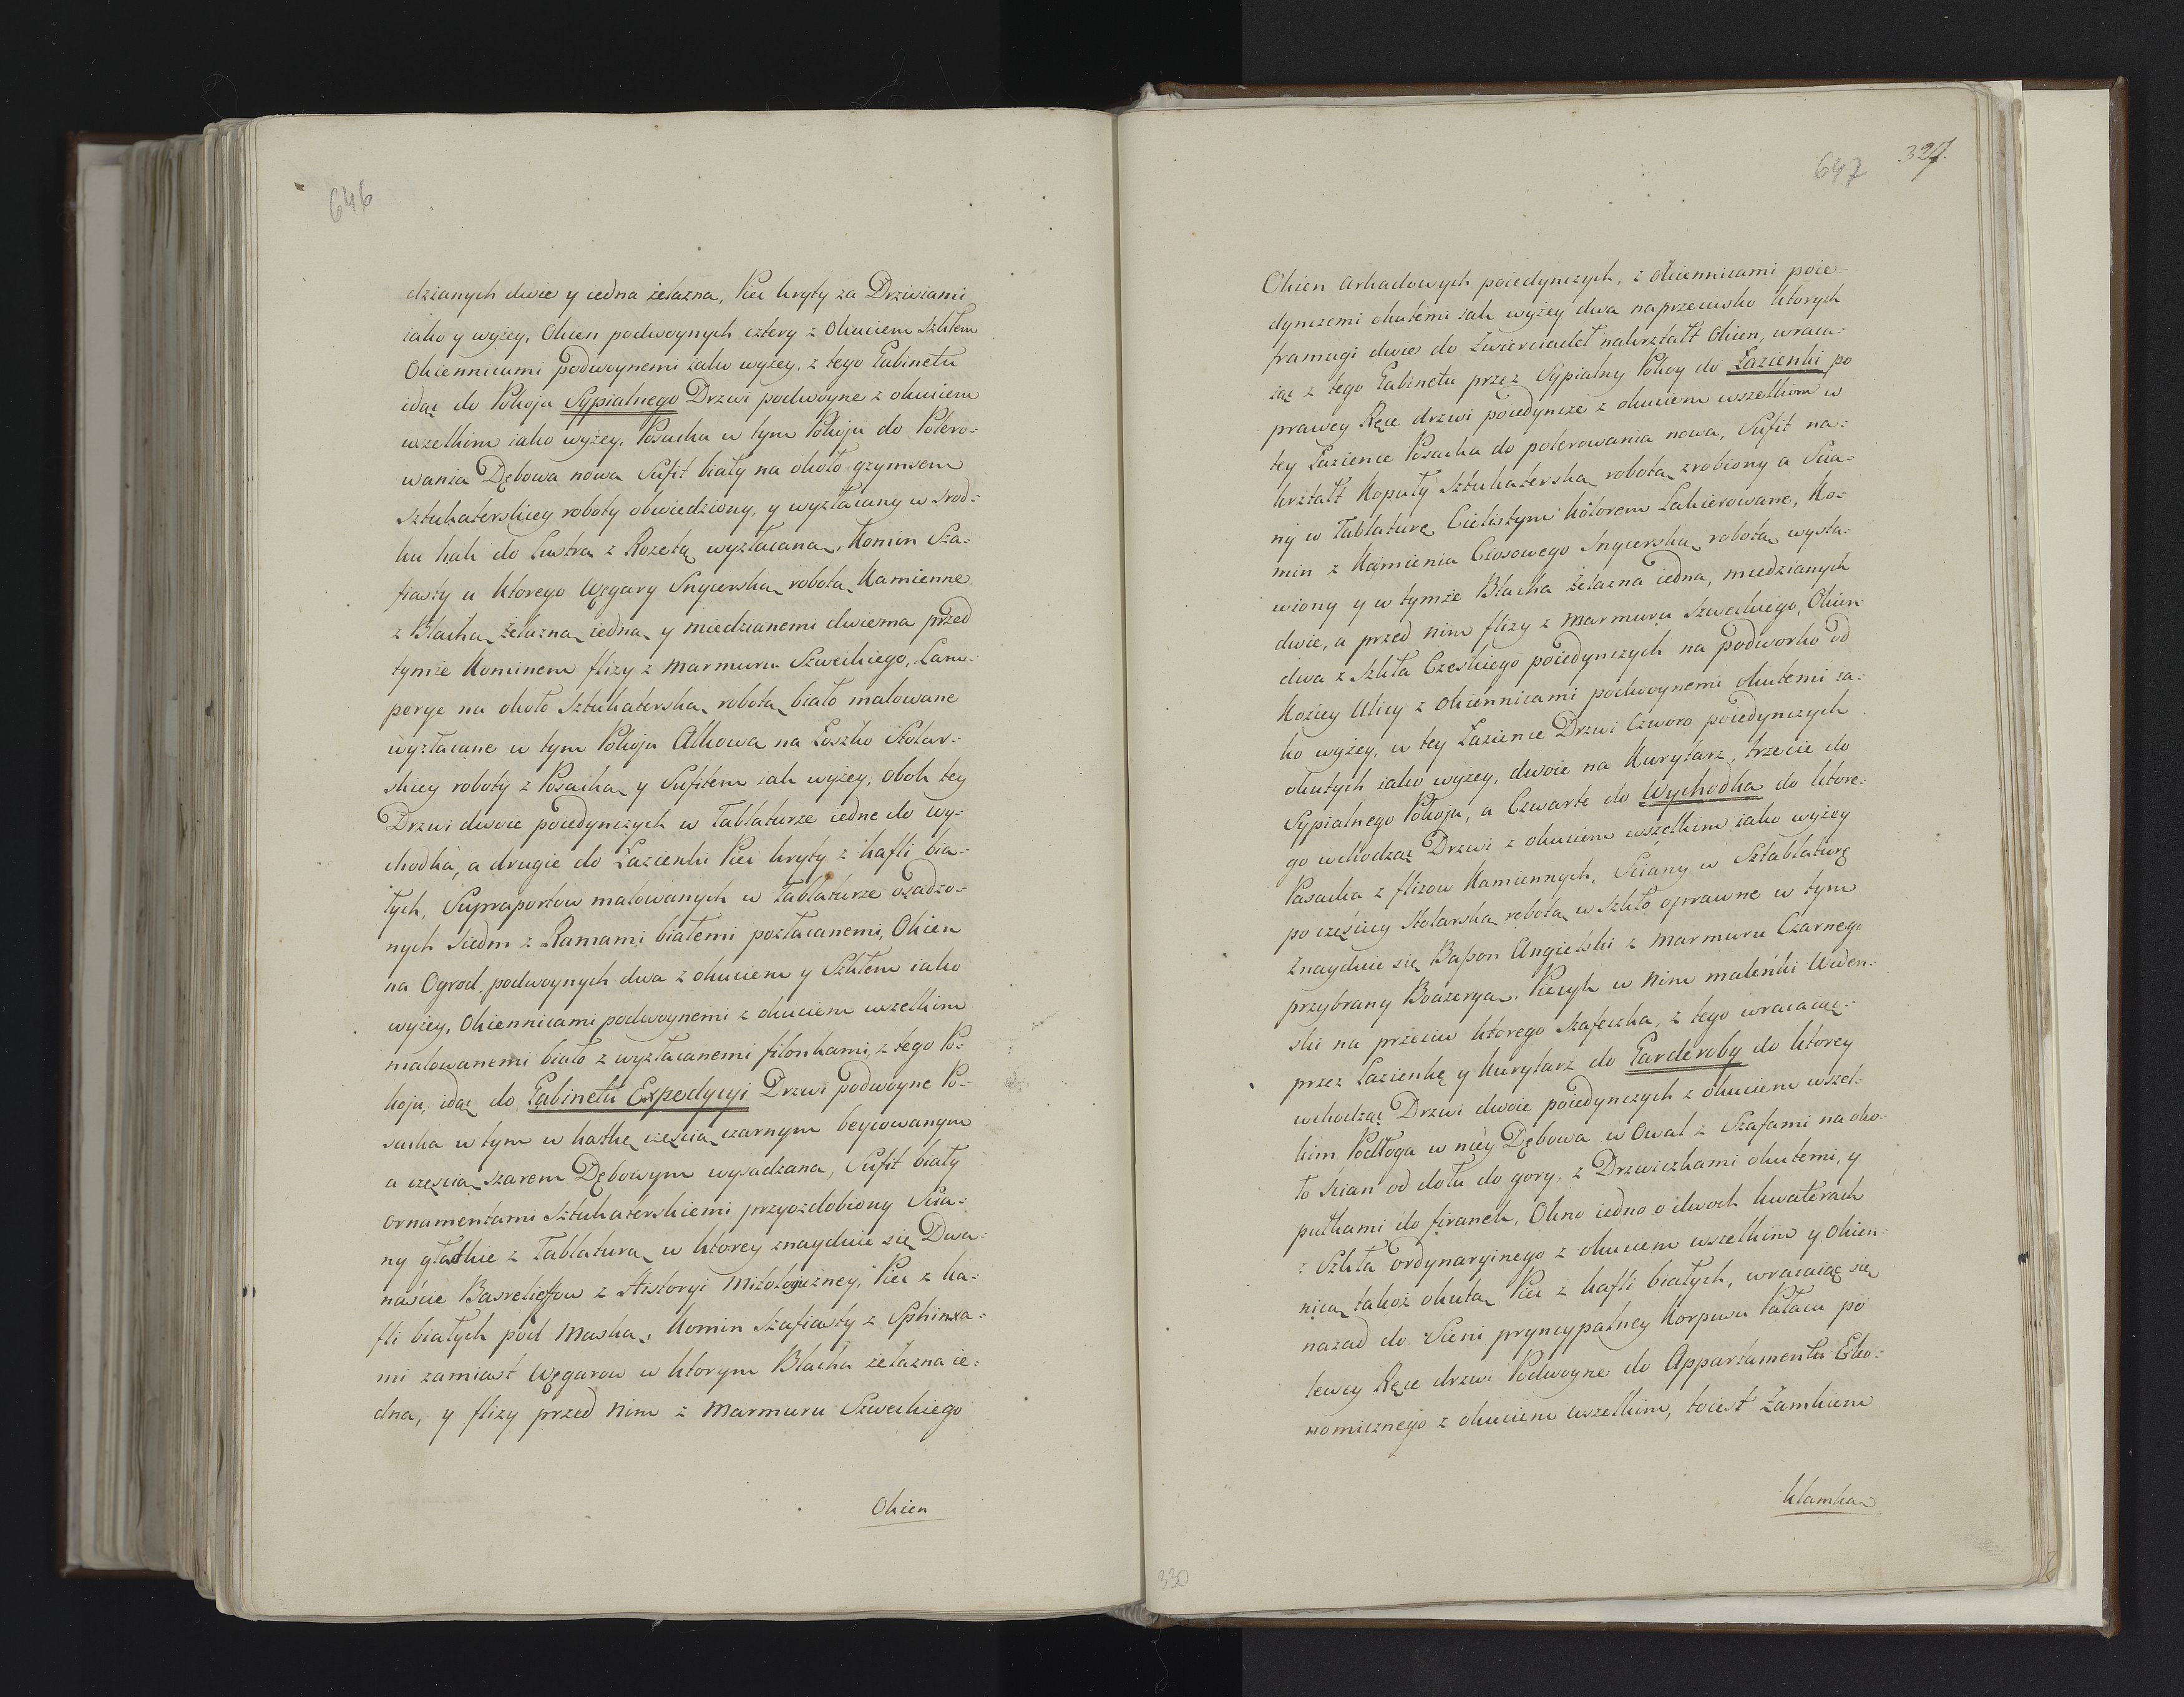 646
dzianych dwie y iedna żelazna, Piec kryty za Drzwiami
iako y wyżey, Okien podwoynych cztery z Okuciem Szkłem
Okiennicami podwoynemi iako wyżey, z tego Gabinetu
idąc do Pokoju Sypialnego Drzwi podwoyne z okuciem
wszelkim iako wyżey, Posacka w tym Pokoju do Polero-
wania Dębowa nowa Sufit biały na około gzymsem
Sztukaterskiey roboty obwiedziony, y wyzłacany w srod-
ku hak do Lustra z Rozetą wyzłacaną, Komin Sza-
fiasty u ktorego Węgary Snycerską robotą Kamienne
z Blachą żelazną iedną y miedzianemi dwiema przed
tymże Kominem flizy z Marmuru Szweckiego, Lam-
perye na około Sztukaterską robotą biało malowane
wyzłacane w tym Pokoju Alkowa na Łoszko Stolar-
skiey roboty z Posacką y Sufitem iak wyżey, obok tey
Drzwi dwoie poiedynczych w Tablaturze iedne do Wy-
chodka, a drugie do Łazienki Piec kryty z kafli bia-
łych, Supraportow malowanych w Tablaturze osadzo-
nych siedm z Ramami białemi pozłacanemi, Okien
na Ogrod podwoynych dwa z okuciem y Szkłem iako
wyżey, Okiennicami podwoynemi z okuciem wszelkim
malowanemi biało z wyzłacanemi filonkami, z tego Po-
koju idąc do Gabinetu Expedycyi Drzwi podwoyne Po-
sacka w tym w kostkę częścią czarnym beycowanym
a częścią szarem Dębowym wysadzana, Sufit biały
ornamentami Sztukaterskiemi przyozdobiony Scia-
ny gładkie z Tablaturą w ktorey znayduie się Dwa-
naście Basreliefow z Historyi Mitologiczney, Piec z ka-
fli białych pod Maską, Komin Szafiasty z Sphinxa-
mi zamiast Węgarow w ktorym Blacha żelazna ie-
dna, y flizy przed Nim z Marmuru Szweckiego
Okien
647
329.
Okien Arkadowych poiedynczych, z okiennicami poie-
dynczemi okutemi iak wyżey dwa naprzeciwko ktorych
framugi dwie do Zwierciadeł nakrztałt Okien, wraca-
iąc z tego Gabinetu przez Sypialny Pokoy do Łazienki po
prawey Ręce drzwi poiedyncze z okuciem wszelkim w
tey Łazience Posacka do polerowania nowa, Sufit na-
krztałt Kopuły Sztukaterską robotą zrobiony a Scia-
ny w Tablaturę Cielistym kolorem Lakierowane, Ko-
min z Kamienia Ciosowego Snycerską robotą wysta-
wiony y w tymże Blacha Żelazna iedna, miedzianych
dwie, a przed nim flizy z Marmuru Szweckiego, Okien
dwa z Szkła Czeskiego poiedynczych na podworko od
Koziey Ulicy z Okiennicami podwoynemi okutemi ia-
ko wyżey, w tey Łazience Drzwi Czworo poiedynczych
okutych iako wyżey, dwoie na Kurytarz, trzecie do
Sypialnego Pokoju, a Czwarte do Wychodka do ktore-
go wchodząc Drzwi z okuciem wszelkim iako wyżey
Posacka z flizow Kamiennych, Sciany w Sztablaturę
po częściey Stolarską robotą w Szkło oprawne w tym
znayduie się Basson Angielski z Marmuru Czarnego
przybrany Boazeryą, Piecyk w Nim maleńki Widen-
ski na przeciw ktorego Szafeczka, z tego wracaiąc-
przez Łazienkę y Kurytarz do Garderoby do ktorey
wchodząc Drzwi dwoie poiedynczych z okuciem wszel-
kim Podłoga w niey Dębowa w Owal z Szafami na oko-
ło ścian od dołu do gory, z Drzwiczkami okutemi, y
pułkami do firanek, Okno iedno o dwoch kwaterach
z Szkła ordynaryinego z okuciem wszelkim y Okien-
nicą takoż okutą Piec z kafli białych, wracaiąc się
nazad do Sieni pryncypalney Korpusu Pałacu po
lewey Ręce drzwi Podwoyne do Appartamentu Eko-
nomicznego z okuciem wszelkim, toiest Zamkiem
klamką
330